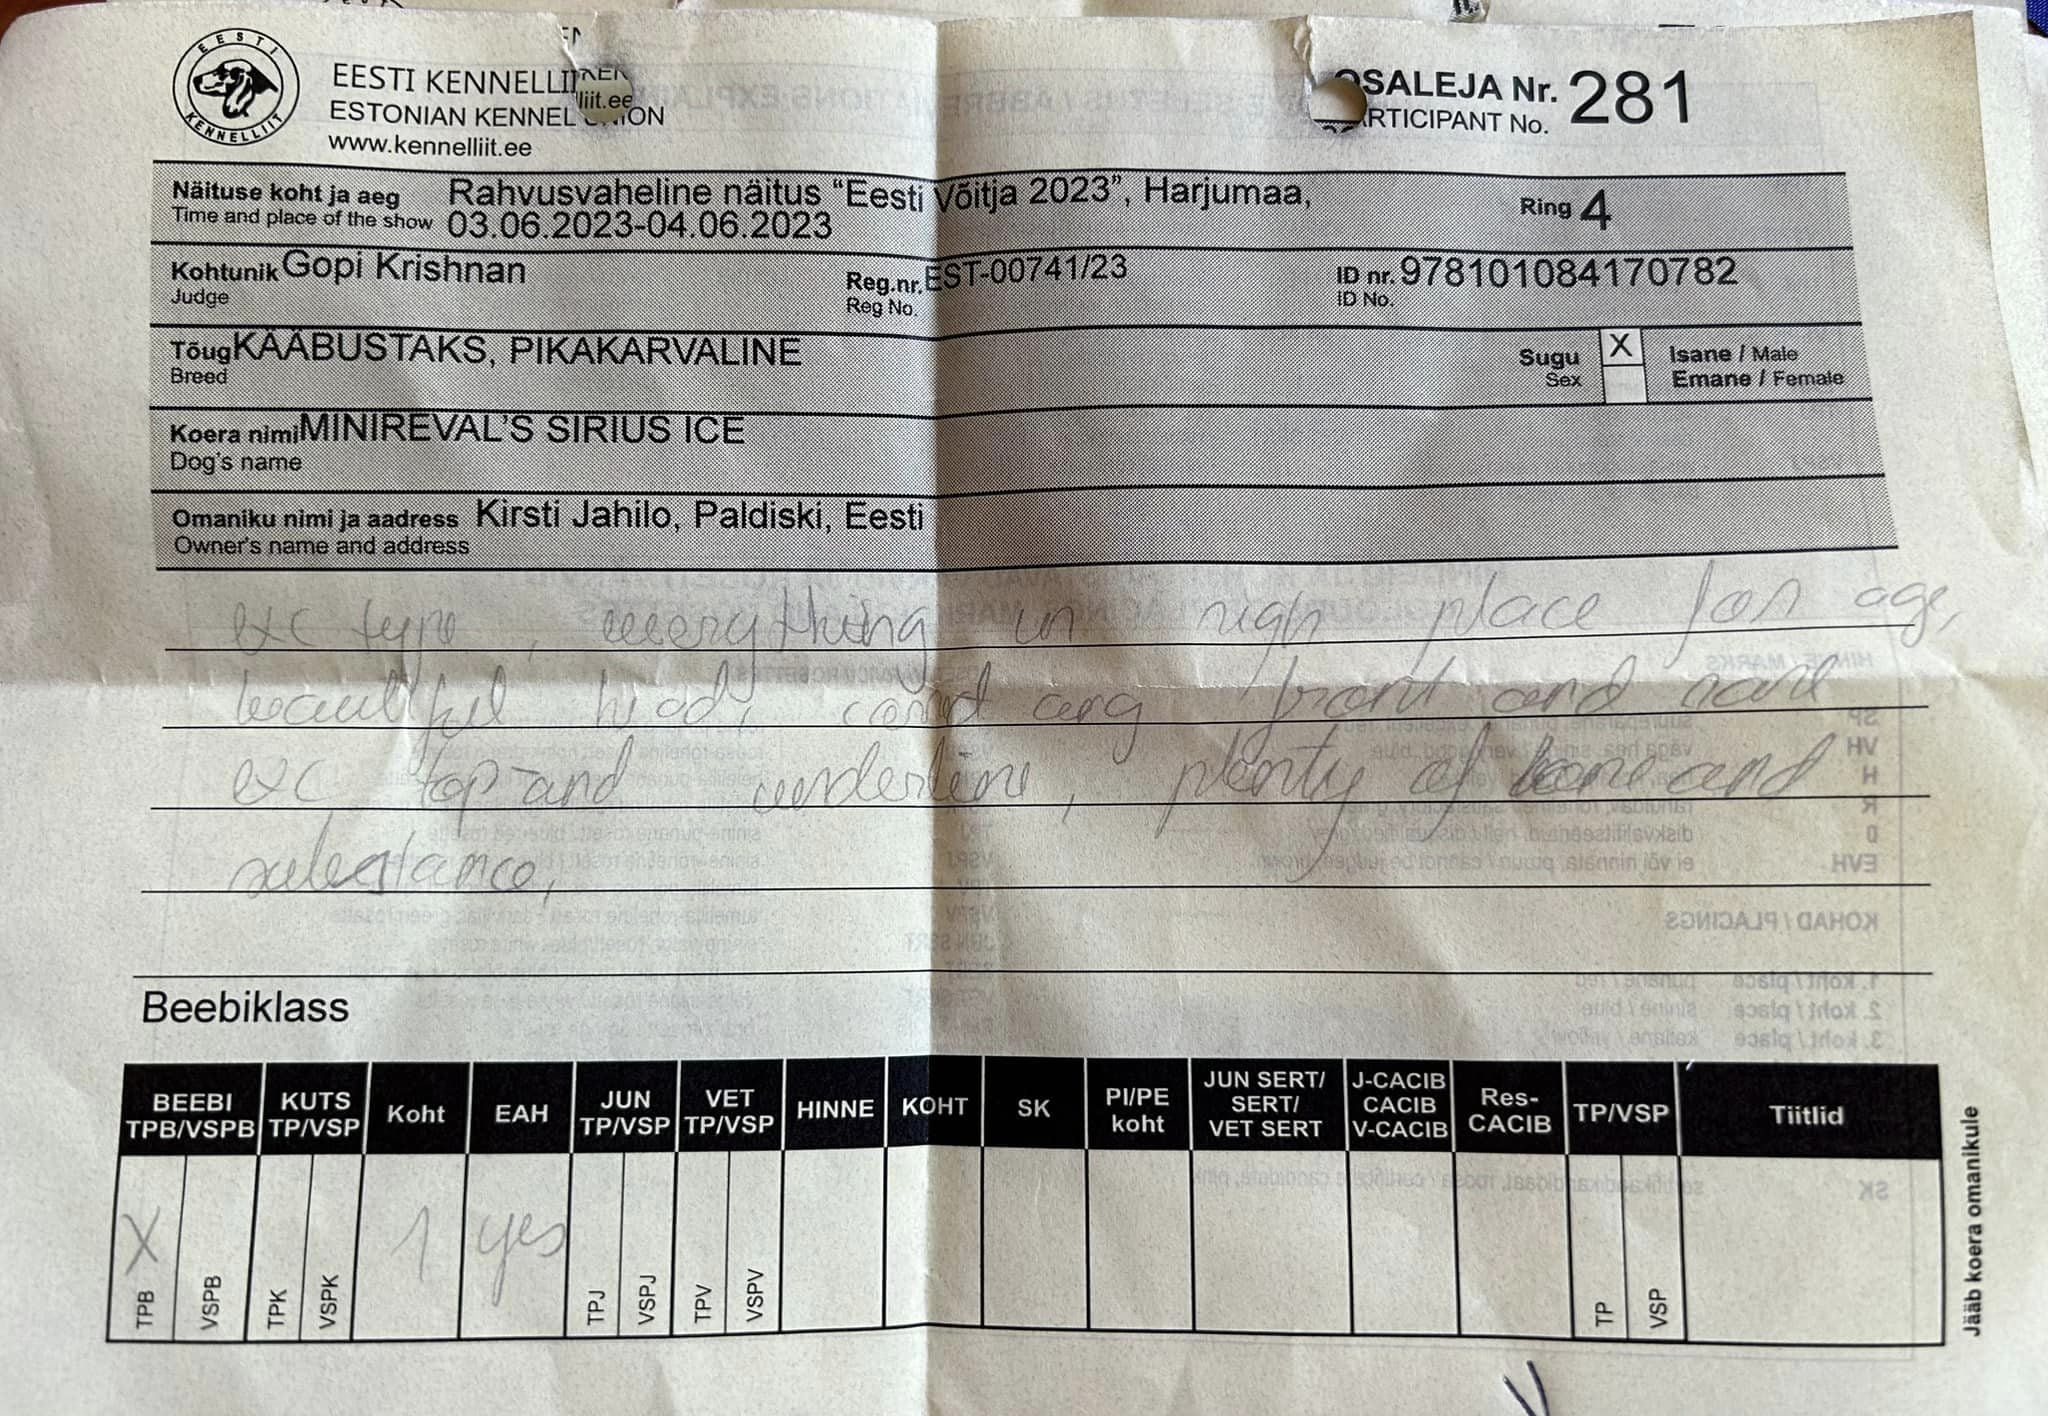 EESTI KENNELLII
ESTONIAN KENNEL UNION
www.kennelliit.ee
OSALEJA Nr. 281
PARTICIPANT No.
Näituse koht ja aeg Rahvusvaheline näitus “Eesti Võitja 2023”, Harjumaa,
Time and place of the show 03.06.2023-04.06.2023
Ring 4
Kohtunik Gopi Krishnan
Judge
Reg.nr. EST-00741/23
Reg No.
ID nr. 978101084170782
ID No.
Tõug KÄÄBUSTAKS, PIKAKARVALINE
Breed
Sugu X Isane / Male
Sex Emane / Female
Koera nimi MINIREVAL’S SIRIUS ICE
Dog's name
Omaniku nimi ja aadress Kirsti Jahilo, Paldiski, Eesti
Owner's name and address
exc type, everything in righ place for age,
beautiful head, ang front and
exc top-and underline, plenty of bone and
substance,
Beebiklass
BEEBI TPB/VSPB KUTS TP/VSP Koht EAH JUN TP/VSP VET TP/VSP HINNE KOHT SK PI/PE koht JUN SERT/ SERT/ VET SERT J-CACIB CACIB V-CACIB Res-CACIB TP/VSP Tiitlid
X 1 yes
TPB VSPB TPK VSPK TPJ VSPJ TPV VSPV TP VSP
Jääb koera omanikule